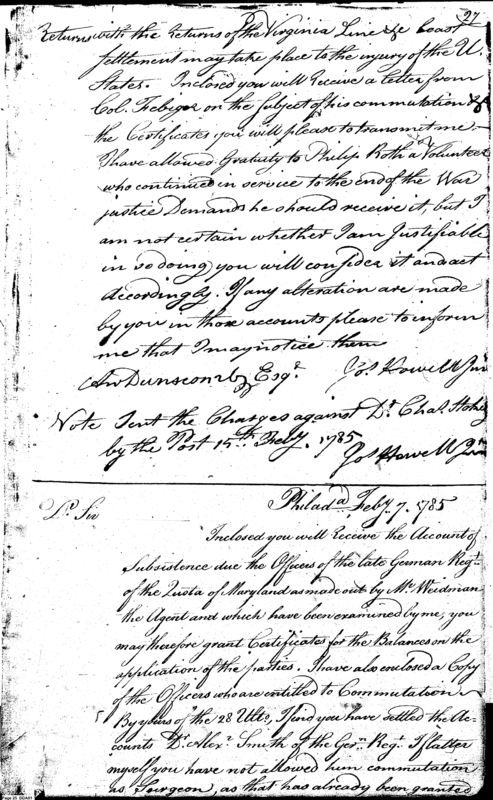 27
Returns with the Returns of the Virginia Line &c coast
settlement may take place to the injury of the U.
States. Inclosed you will Receive a letter from
Col. Febiger on the subject of his commutation &
the Certificates you will please to transmit me —
I have allowed Gratuity to Philip Roth a Volunteer
who continued in service to the end of the War
justice Demands he should receive it, but I
am not certain whether I am Justifiable
in so doing you will consider it and act
Accordingly. If any alteration are made
by you in those accounts please to inform
me that I may notice them
Aw Dunscomb Esqr. Jos. Howell Jun
Note Sent the Charges against Dr. Chas.
by the Post 15th Feby. 1785
Jos Howell Jun
Philada. Feby. 7. 1785
Dr. Sir
Inclosed you will Receive the Account of
Subsistence due the Officers of the late German Regt.
of the Quota of Maryland as made out by Mr. Weidman
the Agent and which have been examined by me, you
may therefore grant Certificates for the Balances on the
application of the parties. I have also enclosed a Copy
of the Officers who are entitled to Commutation
By yours of the 28 Ulto, I find you have settled the Ac-
counts Dr. Alexr. Smith of the Gern. Regt. I flatter
myself you have not allowed him commutation
as Surgeon, as that has already been granted